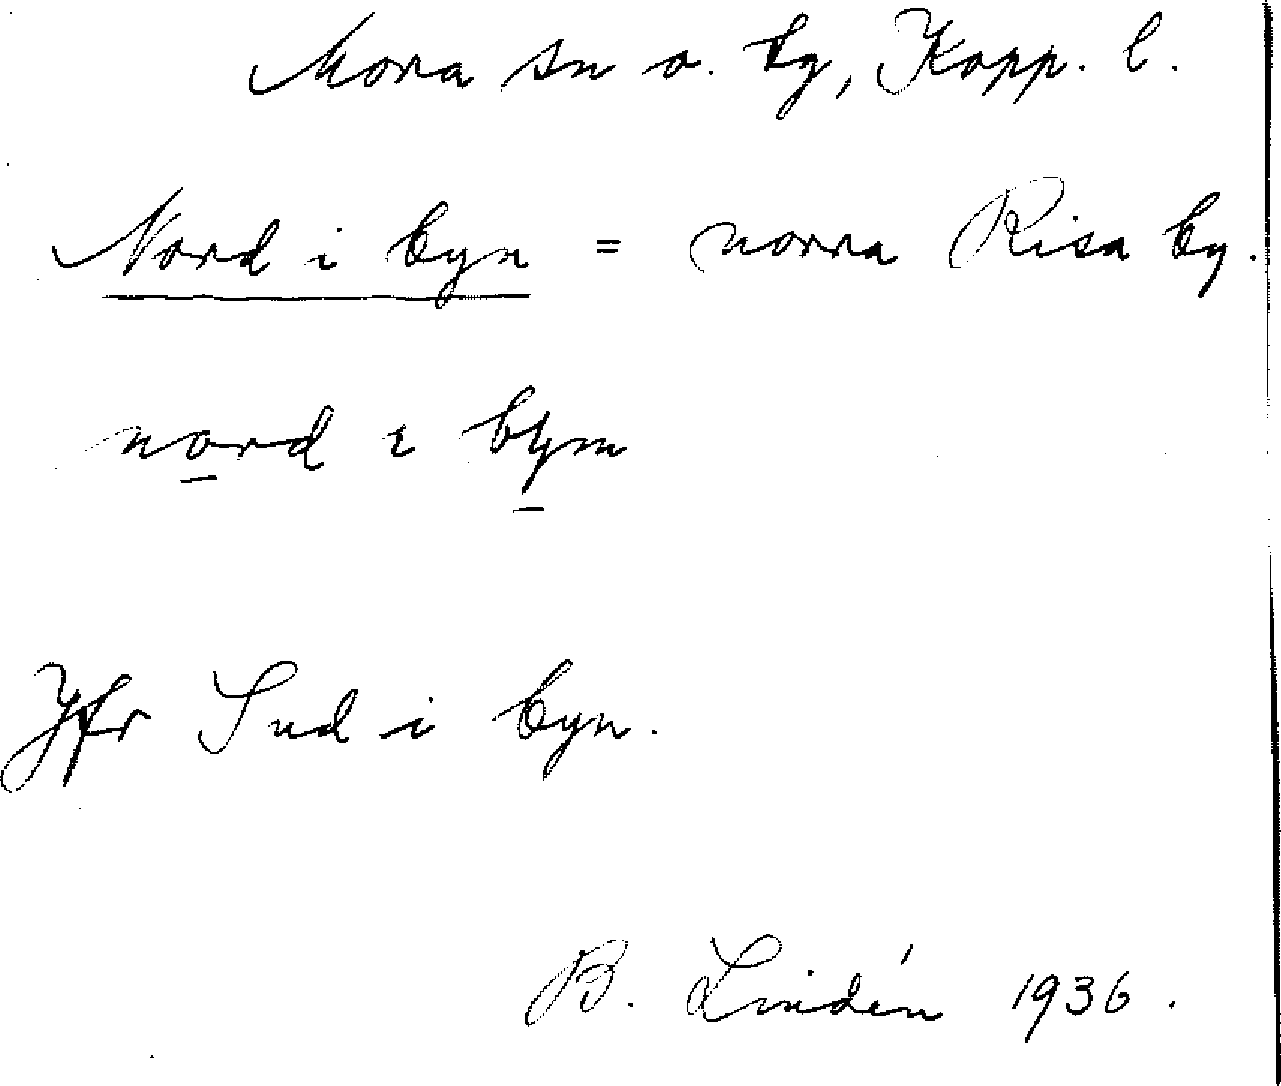 Mora sn o. tg, Kopp. l.
Nord i byn = norra Risa by.
nord i bym
Jfr Sud i byn.
B. Lindén 1936.